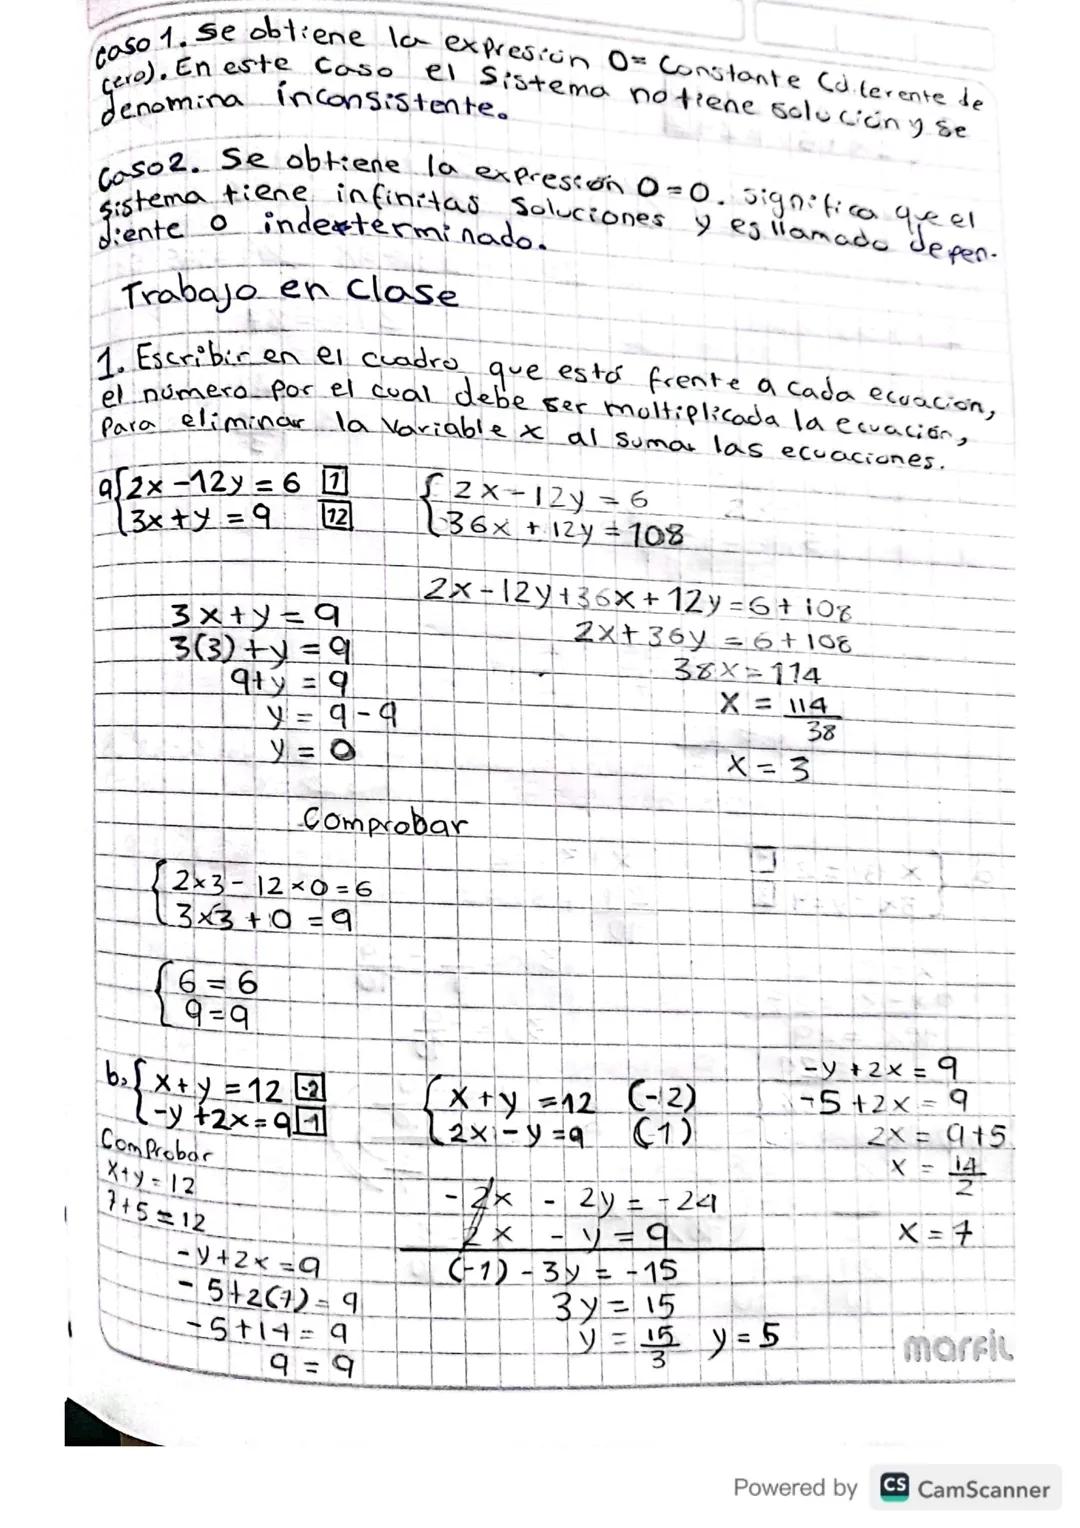 caso 1. Se obtiene la expresión 0= Constante (diferente de
cero). En este caso el sistema no tiene solución y se
denomina inconsistente.
Caso 2. Se obtiene la expresión 0=0. Significa que el
sistema tiene infinitas soluciones y es llamado depen-
diente o indeterminado.
Trabajo en clase
1. Escribir en el cuadro que está frente a cada ecuación,
el número por el cual debe ser multiplicada la ecuación,
Para eliminar la variable x al sumar las ecuaciones.
a{2x-12y=6 1
{3x+y=9 12
{2x-12y=6
{36x+12y=108
2x-12y+36x+12y=6+108
2x+36y=6+108
38x=114
x=114
38
x=3
3x+y=9
3(3)+y=9
9+y=9
y=9-9
y=0
Comprobar
{2x3-12x0=6
{3x3+0=9
{6=6
{9=9
b.{x+y=12 -2
{-y+2x=9 -1
Comprobar
x+y=12
7+5=12
-y+2x=9
-5+2(7)=9
-5+14=9
9=9
{x+y=12 (-2)
{2x-y=9 (-1)
-2x-2y=-24
2x-y=9
(-1)-3y=-15
3y=15
y=15 y=5
3
-y+2x=9
-5+2x=9
2x=9+5
x=14
2
x=7
marfil
Powered by CS CamScanner